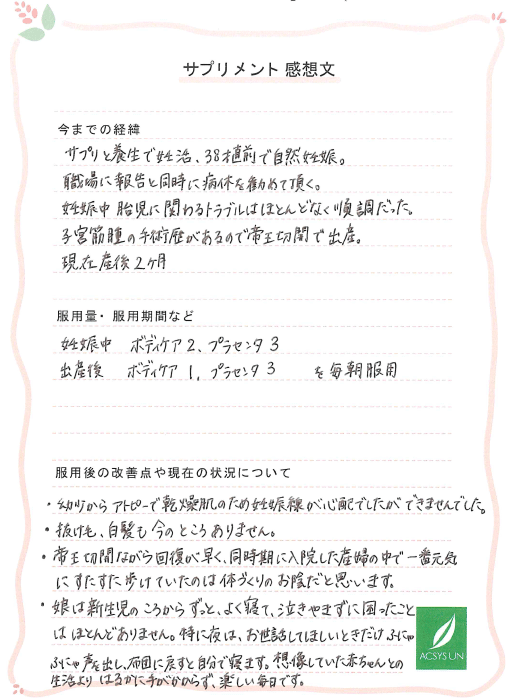 サプリメント 感想文
今までの経緯
サプリと養生で妊活、38歳直前で自然妊娠。
職場に報告と同時に病休を勧めて頂く。
妊娠中 胎児に関わるトラブルはほとんどなく順調だった。
子宮筋腫の手術歴があるので帝王切開で出産。
現在産後2ヶ月
服用量・服用期間など
妊娠中 ボディケア 2、プラセンタ 3
出産後 ボディケア 1、プラセンタ 3 を毎朝服用
服用後の改善点や現在の状況について
・幼少からアトピーで乾燥肌のため妊娠線が心配でしたができませんでした。
・抜け毛、白髪も今のところありません。
・帝王切開ながら回復が早く、同時期に入院した産婦の中で一番元気
にすたすた歩けていたのは体づくりのお陰だと思います。
・娘は新生児のころからずっと、よく寝て、泣きやまずに困ったこと
はほとんどありません。特に夜は、お世話してほしいときだけふにゃ
ふにゃ声を出し、布団に戻すと自分で寝ます。想像していた赤ちゃんとの
生活より はるかに手がかからず、楽しい毎日です。
ACSYS UN